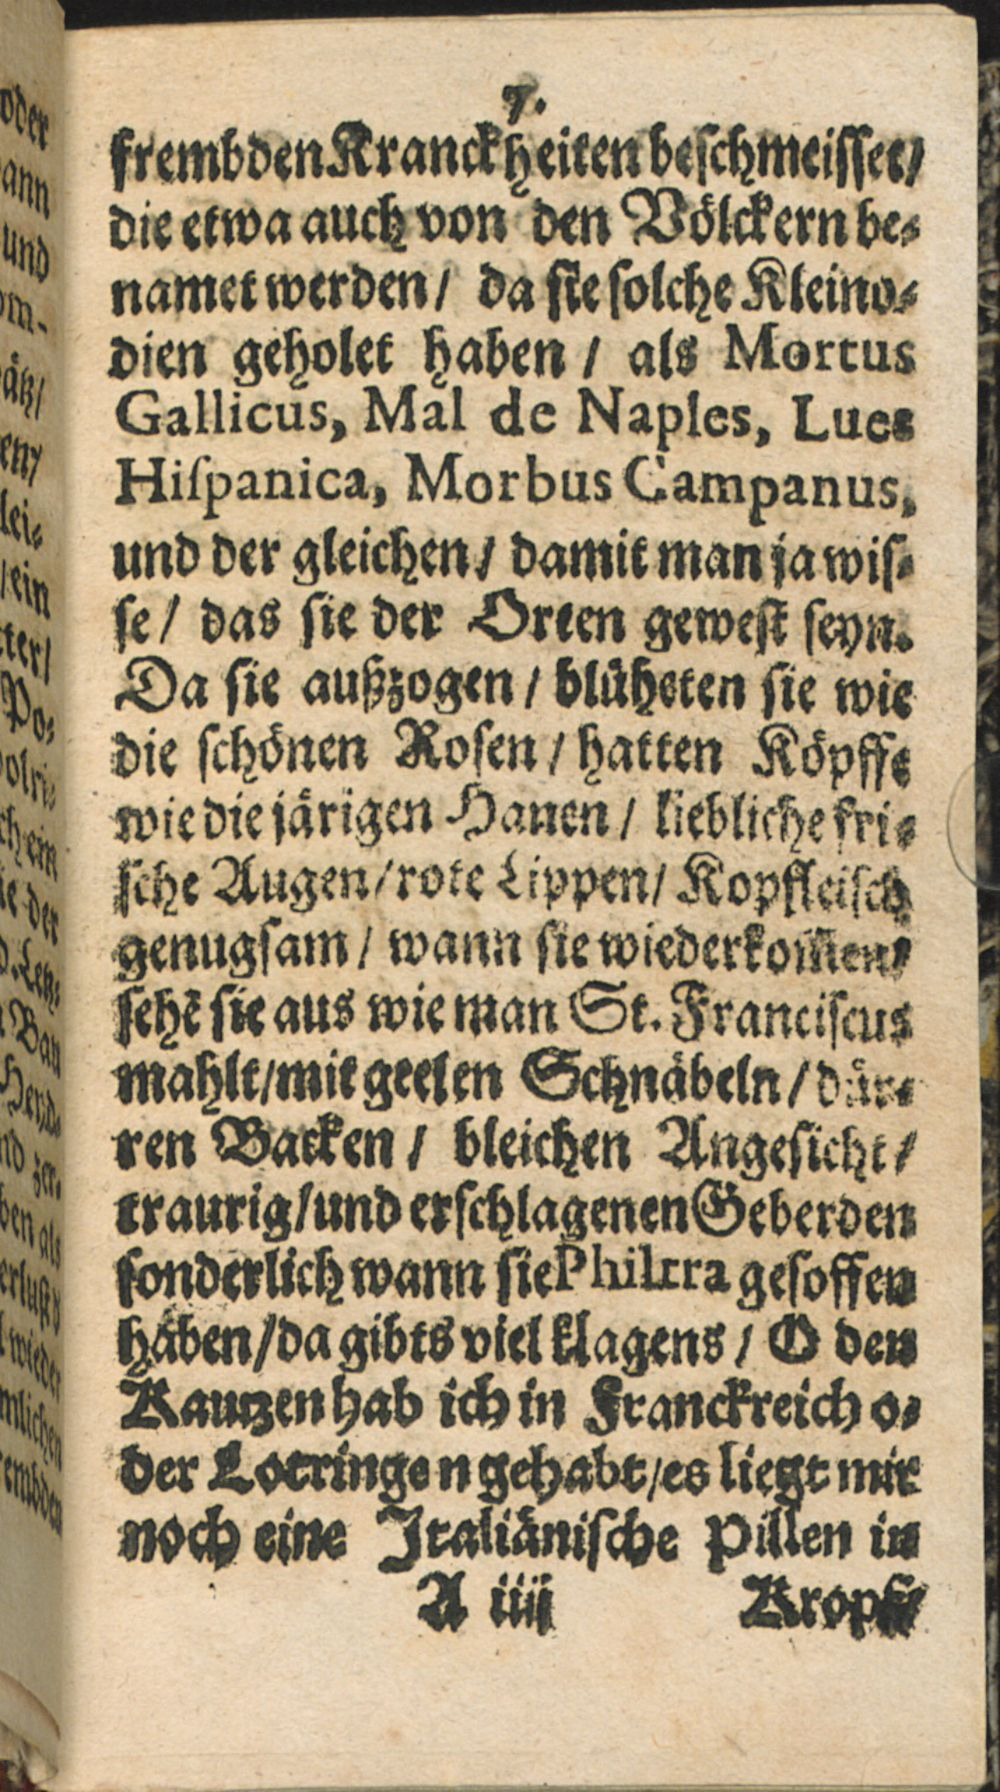 7.
frembden Kranckheiten beschmeisset/
die etwa auch von den Völckern be⸗
namet werden/ da sie solche Kleino⸗
dien geholet haben / als Mortus
Gallicus, Mal de Naples, Lues
Hiſpanica, Morbus Campanus,
und der gleichen / damit man ja wis⸗
se / das sie der Orten gewest seyn.
Da sie außzogen / blüheten sie wie
die schönen Rosen / hatten Köpffe
wie die järigen Hanen / liebliche fri⸗
sche Augen / rote Lippen / Kopfleisch
genugsam / wann sie wiederkom̃en/
sehẽ sie aus wie man St. Franciscus
mahlt/mit geelen Schnäbeln / dür⸗
ren Backen / bleichen Angesicht /
traurig/und erschlagenen Geberden
sonderlich wann sie Philtra gesoffen
haben/da gibts viel klagens / O den
Kautzen hab ich in Franckreich o⸗
der Lotringen gehabt/es liegt mir
noch eine Italiänische Pillen in
A iiij Kropff/
oder
ann
und
om-
ätz/
en/
lei⸗
/ein
ter/
Po⸗
der
als
wieder
embden